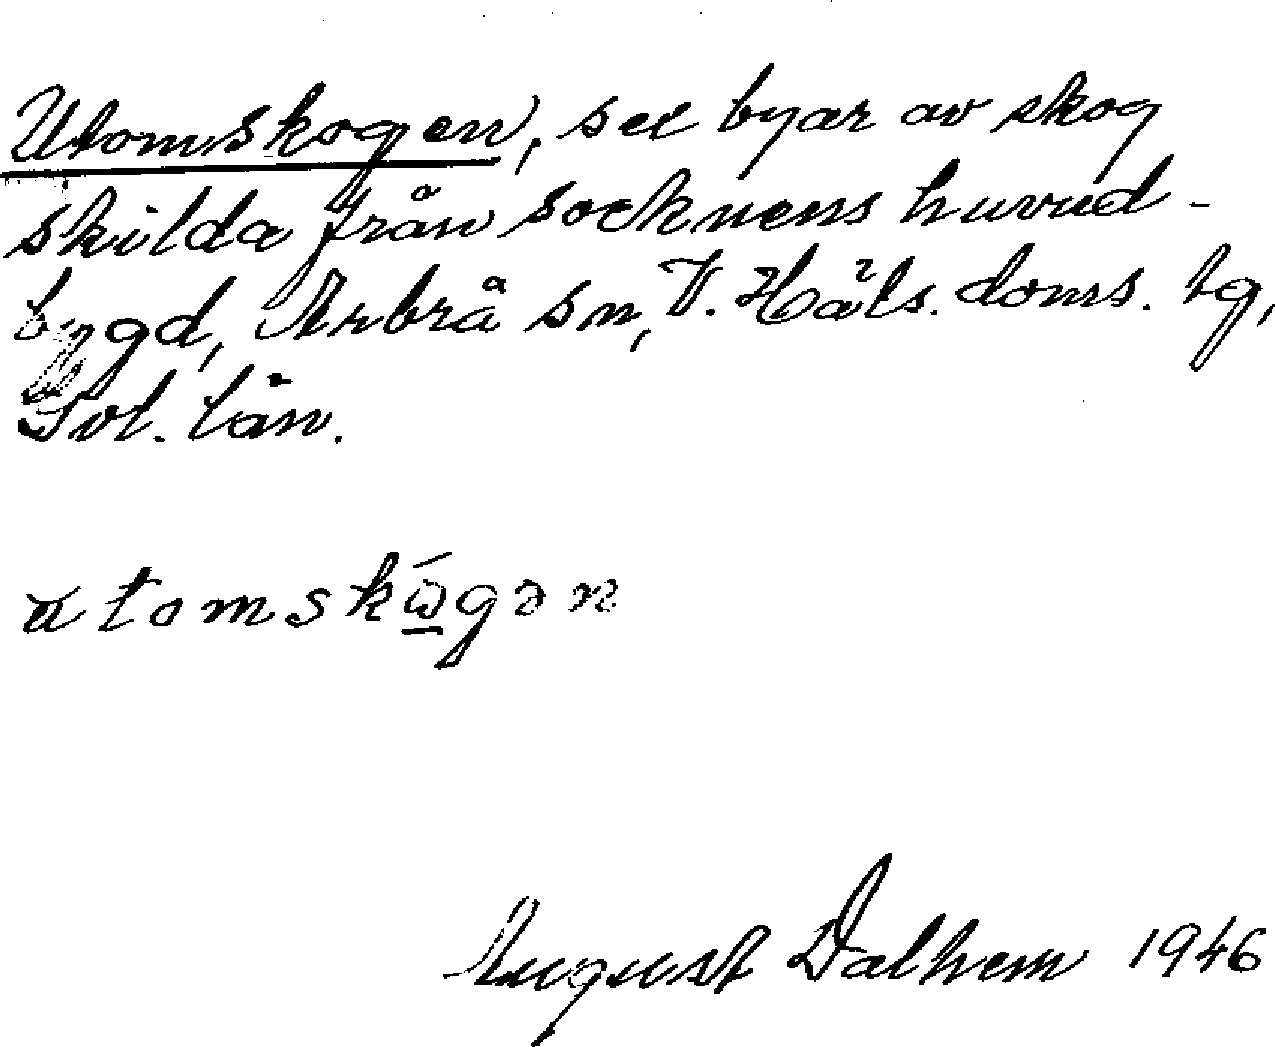 Utomskogen, sex byar av skog
skilda från socknens huvud-
bygd, Arbrå sn, V. Häls. doms. tg,
län.
utomskώ̱gən
August Dalhem 1946